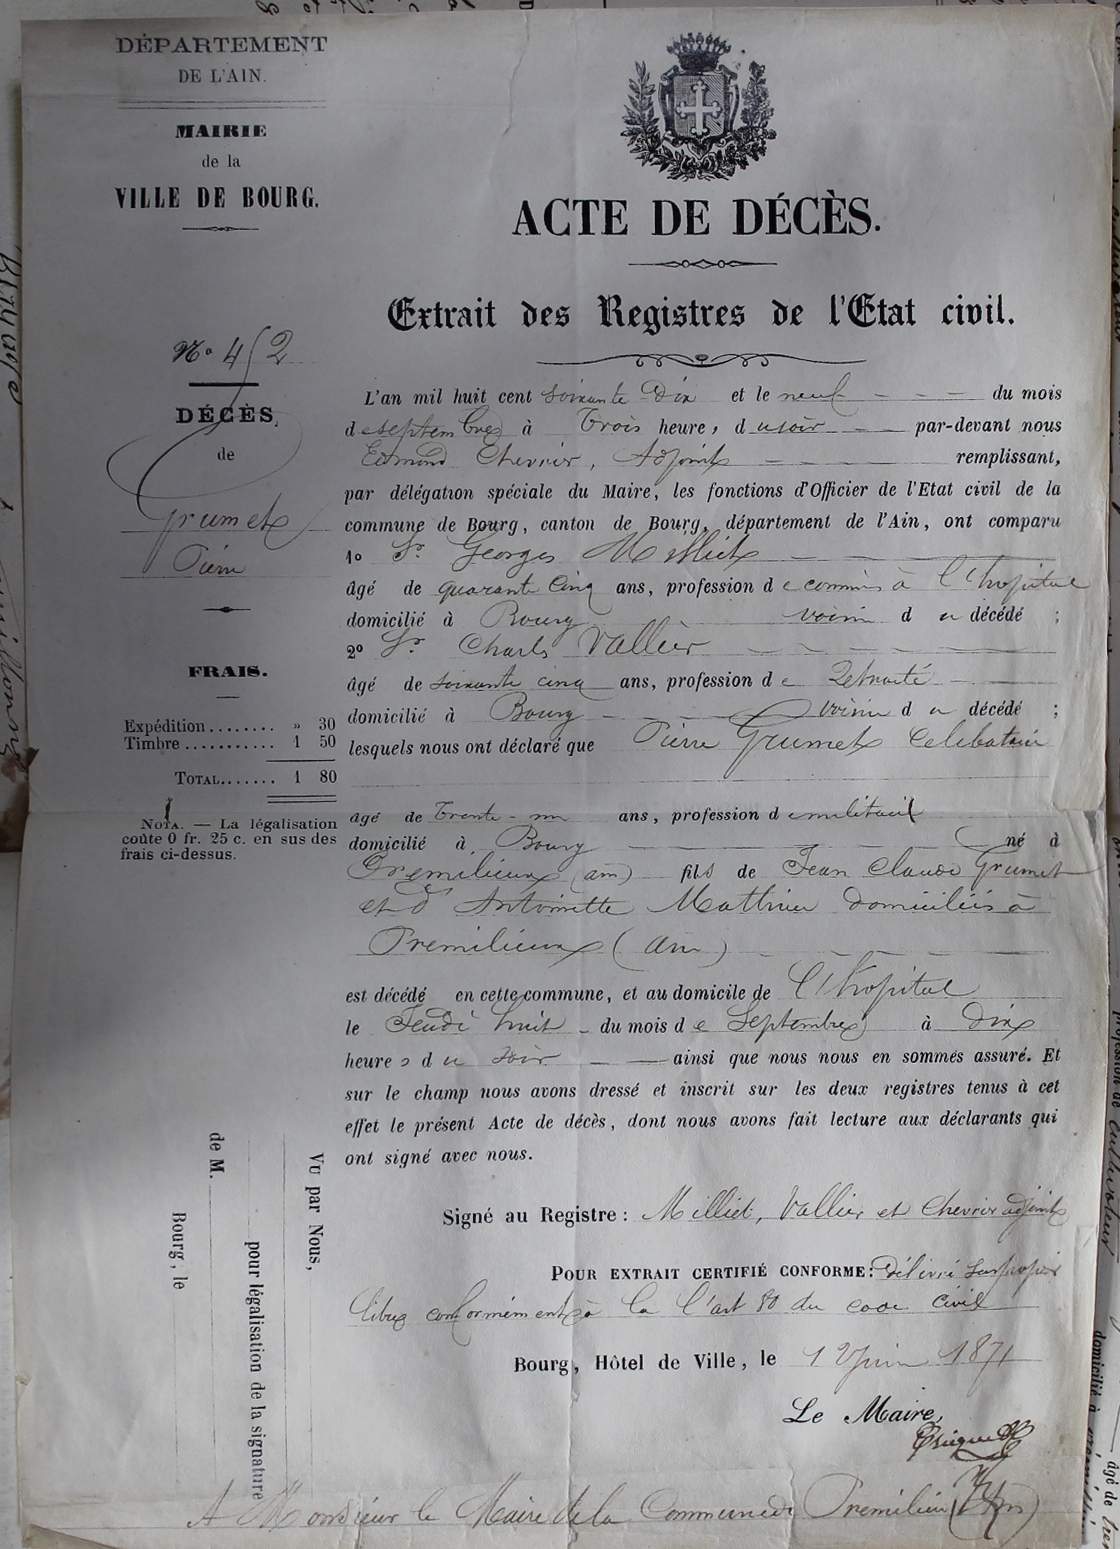 DÉPARTEMENT
DE L'AIN.
MAIRIE
de la
VILLE DE BOURG.
N° 452
DÉCÈS
de
Grumet
Pierre
FRAIS.
Expédition........ » 30
Timbre........... 1 50
TOTAL....... 1 80
NOTA. — La légalisation
coûte 0 fr. 25 c. en sus des
frais ci-dessus.
Vu par Nous,
pour légalisation de la signature
de M.
Bourg, le
ACTE DE DÉCÈS.
Extrait des Registres de l'Etat civil.
L'an mil huit cent soixante Dix et le neuf du mois
de septembre à Trois heures du soir par-devant nous
Edmond Chevrier, Adjoint remplissant,
par délégation spéciale du Maire, les fonctions d'Officier de l'Etat civil de la
commune de Bourg, canton de Bourg, département de l'Ain, ont comparu
1o Sr Georges Milliet
âgé de quarante cinq ans, profession de commis à l'hopital
domicilié à Bourg voisin du décédé ;
2o Sr Charles Vallier
âgé de soixante cinq ans, profession de Retraité
domicilié à Bourg voisin du décédé ;
lesquels nous ont déclaré que Pierre Grumet Celibataire
âgé de Trente-un ans, profession de militaire
domicilié à Bourg né à
Premilieux (ain) fils de Jean Claude Grumet
et d'Antoinette Mathieu domiciliés à
Premilieux (ain)
est décédé en cette commune, et au domicile de l'hopital
le Jeudi huit du mois de Septembre à Dix
heures du soir ainsi que nous nous en sommes assuré. Et
sur le champ nous avons dressé et inscrit sur les deux registres tenus à cet
effet le présent Acte de décès, dont nous avons fait lecture aux déclarants qui
ont signé avec nous.
Signé au Registre : Milliet, Vallier et Chevrier adjoint
POUR EXTRAIT CERTIFIÉ CONFORME: Délivré sur papier
libre conformément à la l'art 80 du code civil
Bourg, Hôtel de Ville, le 12 Juin 1871
Le Maire,
A Monsieur le Maire de la Commune de Premilieu (Ain)